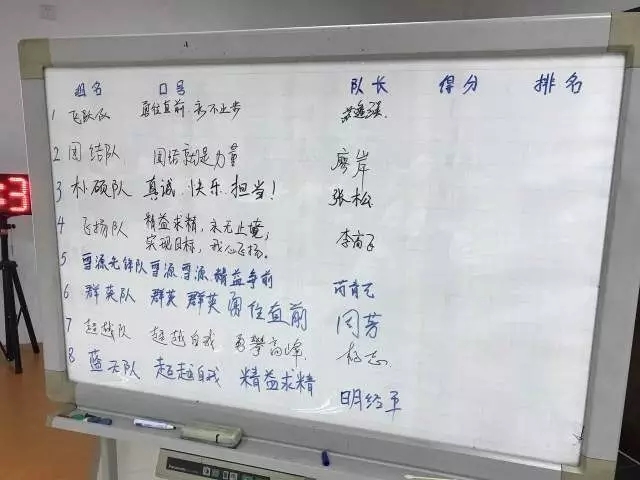 组名 口号 队长 得分 排名
1 飞跃队 勇往直前 永不止步
2 团结队 团结就是力量 廖岸
3 朴硕队 真诚.快乐.担当! 张松
4 飞扬队 精益求精,永无止境;
实现目标,我心飞扬。 李
5 雪源先锋队 雪源雪源 精益争前
6 群英队 群英群英 勇往直前 周芳
7 超越队 超越自我 勇攀高峰. 杨志
8 蓝天队 超越自我 精益求精 明经平
3
Panasonic